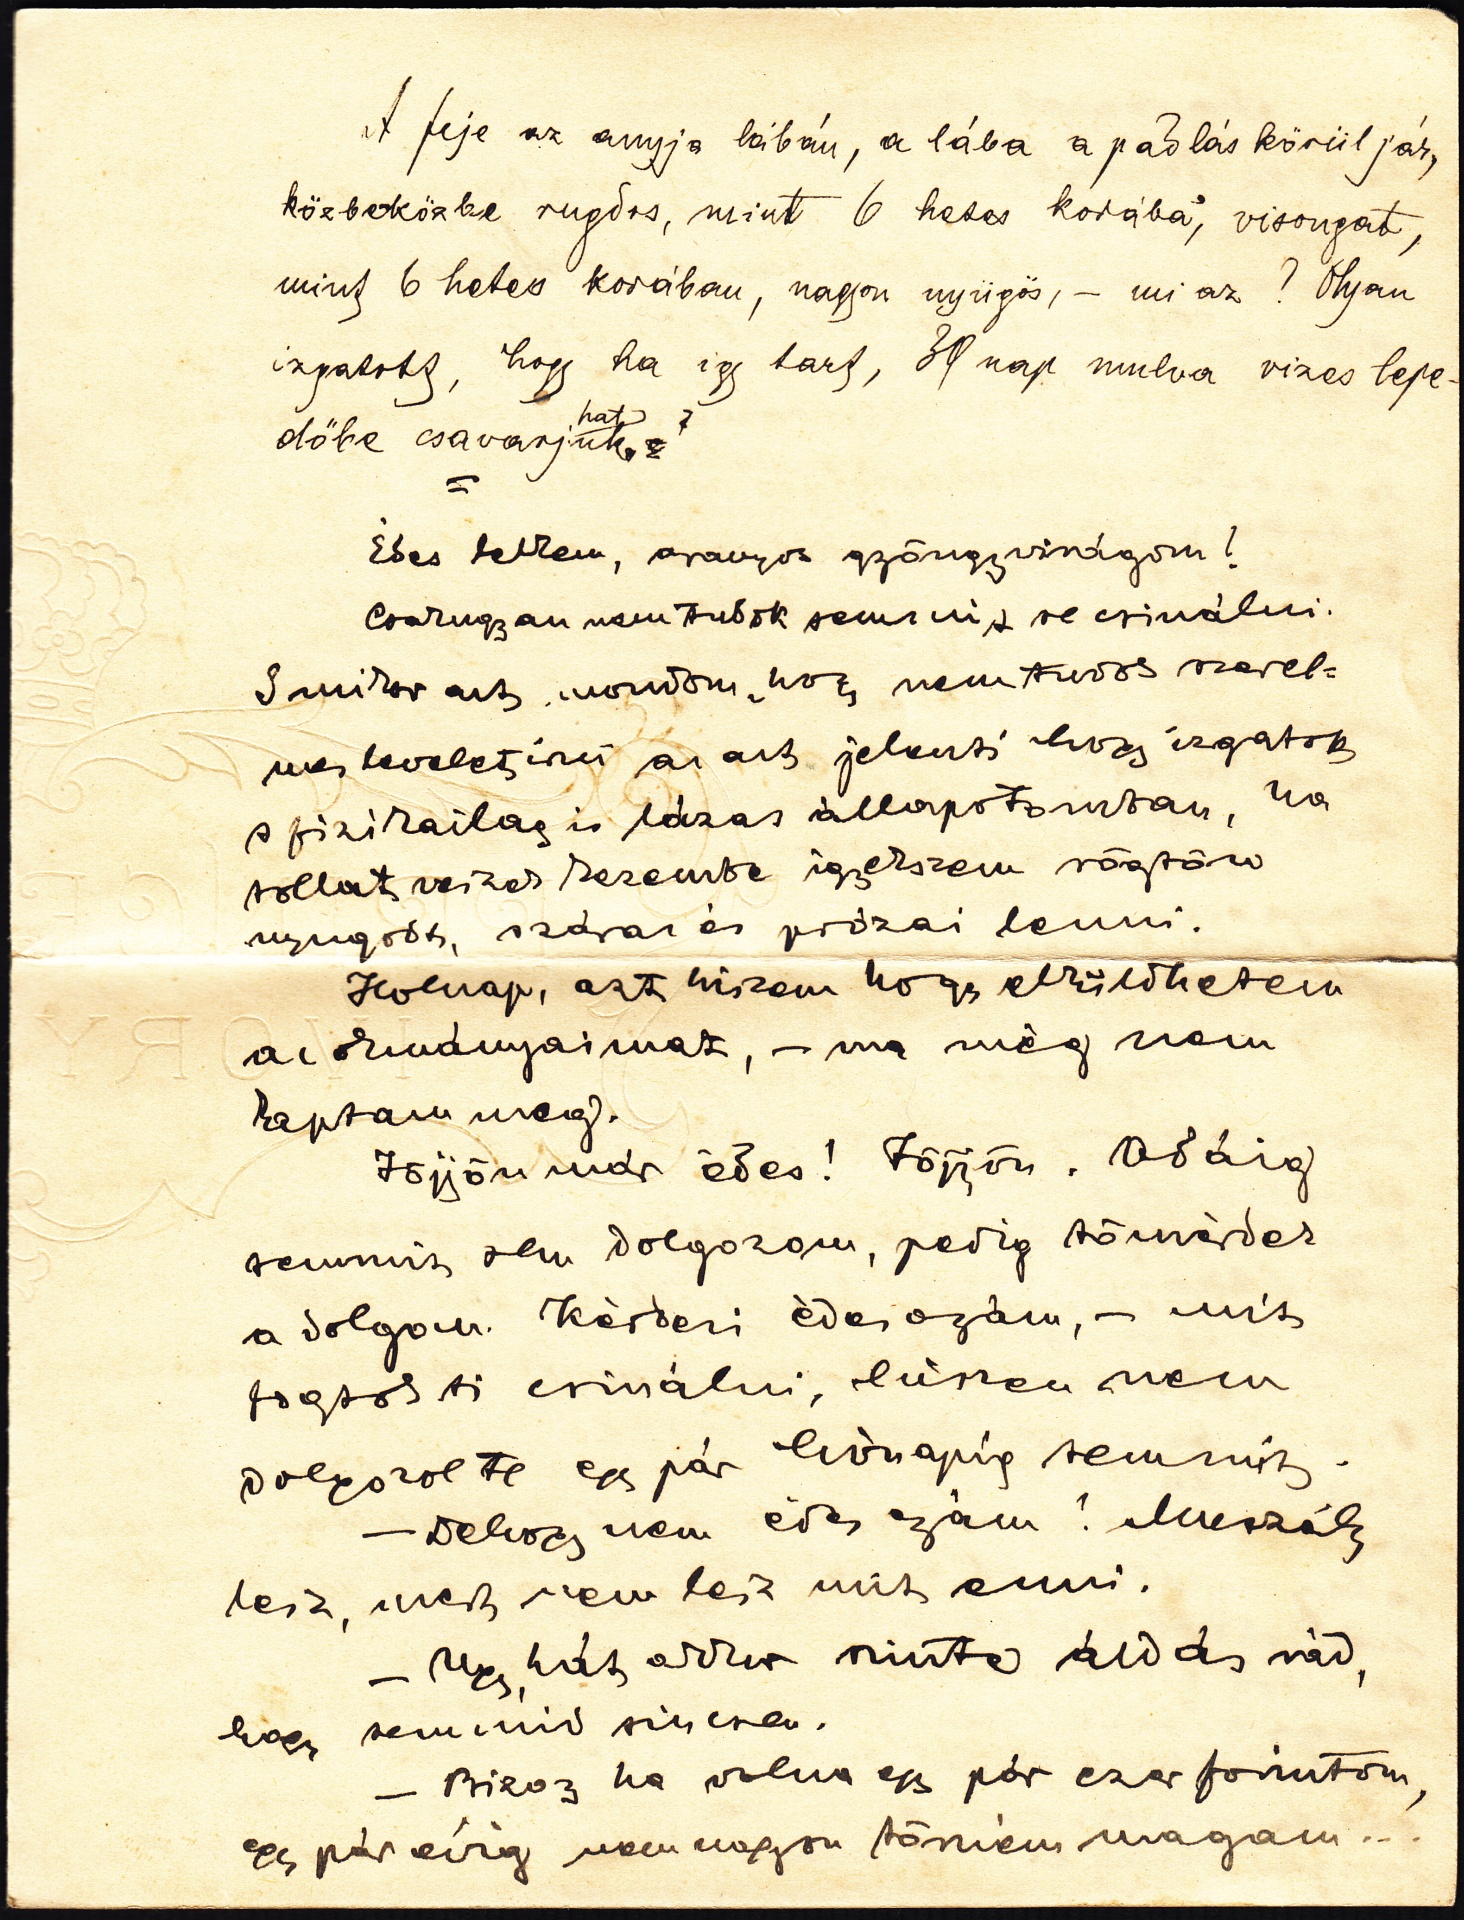 A feje az anyja lábán, a lába a padlás körül jár,
közbeközbe rugdos, mint 6 hetes korába', visongat,
mint 6 hetes korában, nagyon nyügös, – mi az? Olyan
izgatott, hogy ha igy tart, nap mulva vizes lepe-
dőbe csavarjuk
hat ?
Édes lelkem, aranyos gyöngyvirágom!
Csakugyan nem tudok semmit se csinálni.
S mikor azt mondom, hogy nem tudok szerel-
mes levelet irni az azt jelenti hogy izgatott
s fizikailag is lázas állapotomban, ha
tollat veszek kezembe igyekszem rögtön
nyugodt, száraz és prózai lenni.
Holnap, azt hiszem hogy elküldhetem
az okmányaimat, – ma még nem
kaptam meg.
Jőjjön már édes! Jőjjön. Addig
semmit sem dolgozom, pedig töméntelen
a dolgom. Kérdezi édes anyám, – mit
fogtok ti csinálni, hiszen nem
dolgoztok egy pár hónapig semmit.
– Dehogy nem édes anyám! Muszály
lesz, mert nem lesz mit enni.
– Ugy, hát akkor szinte áldás rád,
hogy semmid sincsen.
– Bizony ha volna egy pár ezer forintom,
egy pár évig nem nagyon törném magam...